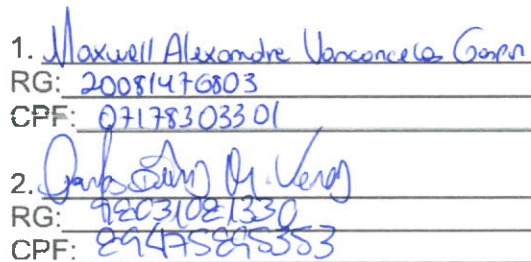 1. Maxwell Alexandre Vanconcelos Gaspar
RG: 20081476803
CPF: 07178303301
2. Carlos
RG: 92031021330
CPF: 89475895353